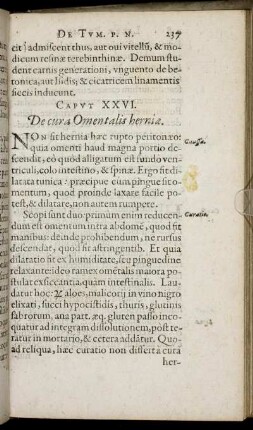 DE TVM. P. N. 237
cit? admiscent thus, aut oui vitellũ, & mo-
dicum resinæ terebinthinæ. Demum stu-
dent carnis generationi, vnguento de be-
tonica, aut Isidis; & cicatricem linamentis
siccis inducunt.
CAPVT XXVI.
De cura Omentalis herniæ.
NON fit hernia hæc rupto peritonæo:
quia omenti haud magna portio de-
Caussa.
scendit, eò quòd alligatum est fundo ven-
triculi, colo intestino, & spinæ. Ergo fit di-
latata tunica: præcipuè cum pingue sit o-
mentum, quod proinde laxare facile po-
test, & dilatare, non autem rumpere.
Scopi sunt duo: primùm enim reducen-
Curatio.
dum est omentum intra abdomẽ, quod fit
manibus: deinde prohibendum, ne rursus
descendat, quod fit astringentib. Et quia
dilatatio fit ex humiditate, seu pinguedine
relaxante: ideo ramex omẽtalis maiora po-
stulat exsiccantia, quàm intestinalis. Lau-
datur hoc: ℞ aloes, malicorij in vino nigro
elixati, succi hypocistidis, thuris, glutinis
fabrorum, ana part. æq. gluten passo inco-
quatur ad integram dissolutionem, pòst te-
ratur in mortario, & cetera addãtur. Quo-
ad reliqua, hæc curatio non differt à cura
her-